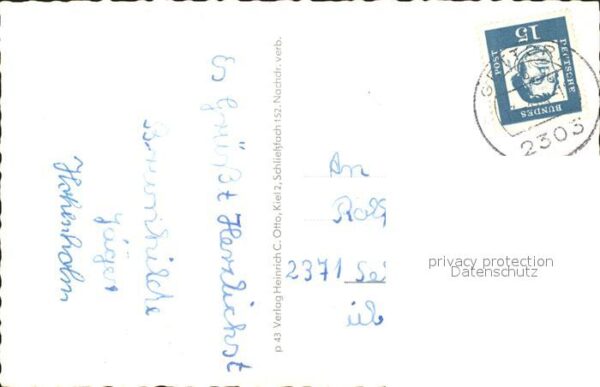 Es Grüßt Herzlichst
Brunhilde
Jäger
Hohenholm
p 43 Verlag Heinrich C. Otto, Kiel 2, Schließfach 152. Nachdr. verb.
An
Rolf
2371 Sei
üb
15
DEUTSCHE
BUNDES
POST
2303
privacy protection
Datenschutz